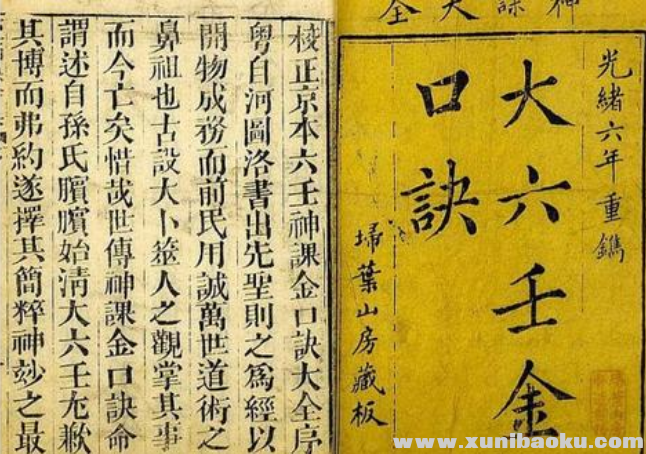 神課大全
光緒六年重鐫
大六壬金
口訣
埽葉山房藏板
校正京本六壬神課金口訣大全序
粵自河圖洛書出先聖則之爲經以
開物成務而前民用誠萬世道術之
鼻祖也古設大卜筮人之觀掌其事
而今亡矣惜哉世傳神課金口訣命
謂述自孫氏臏臏始清大六壬歉
其博而弗約遂擇其簡粹神妙之最
www.xunibaoku.com